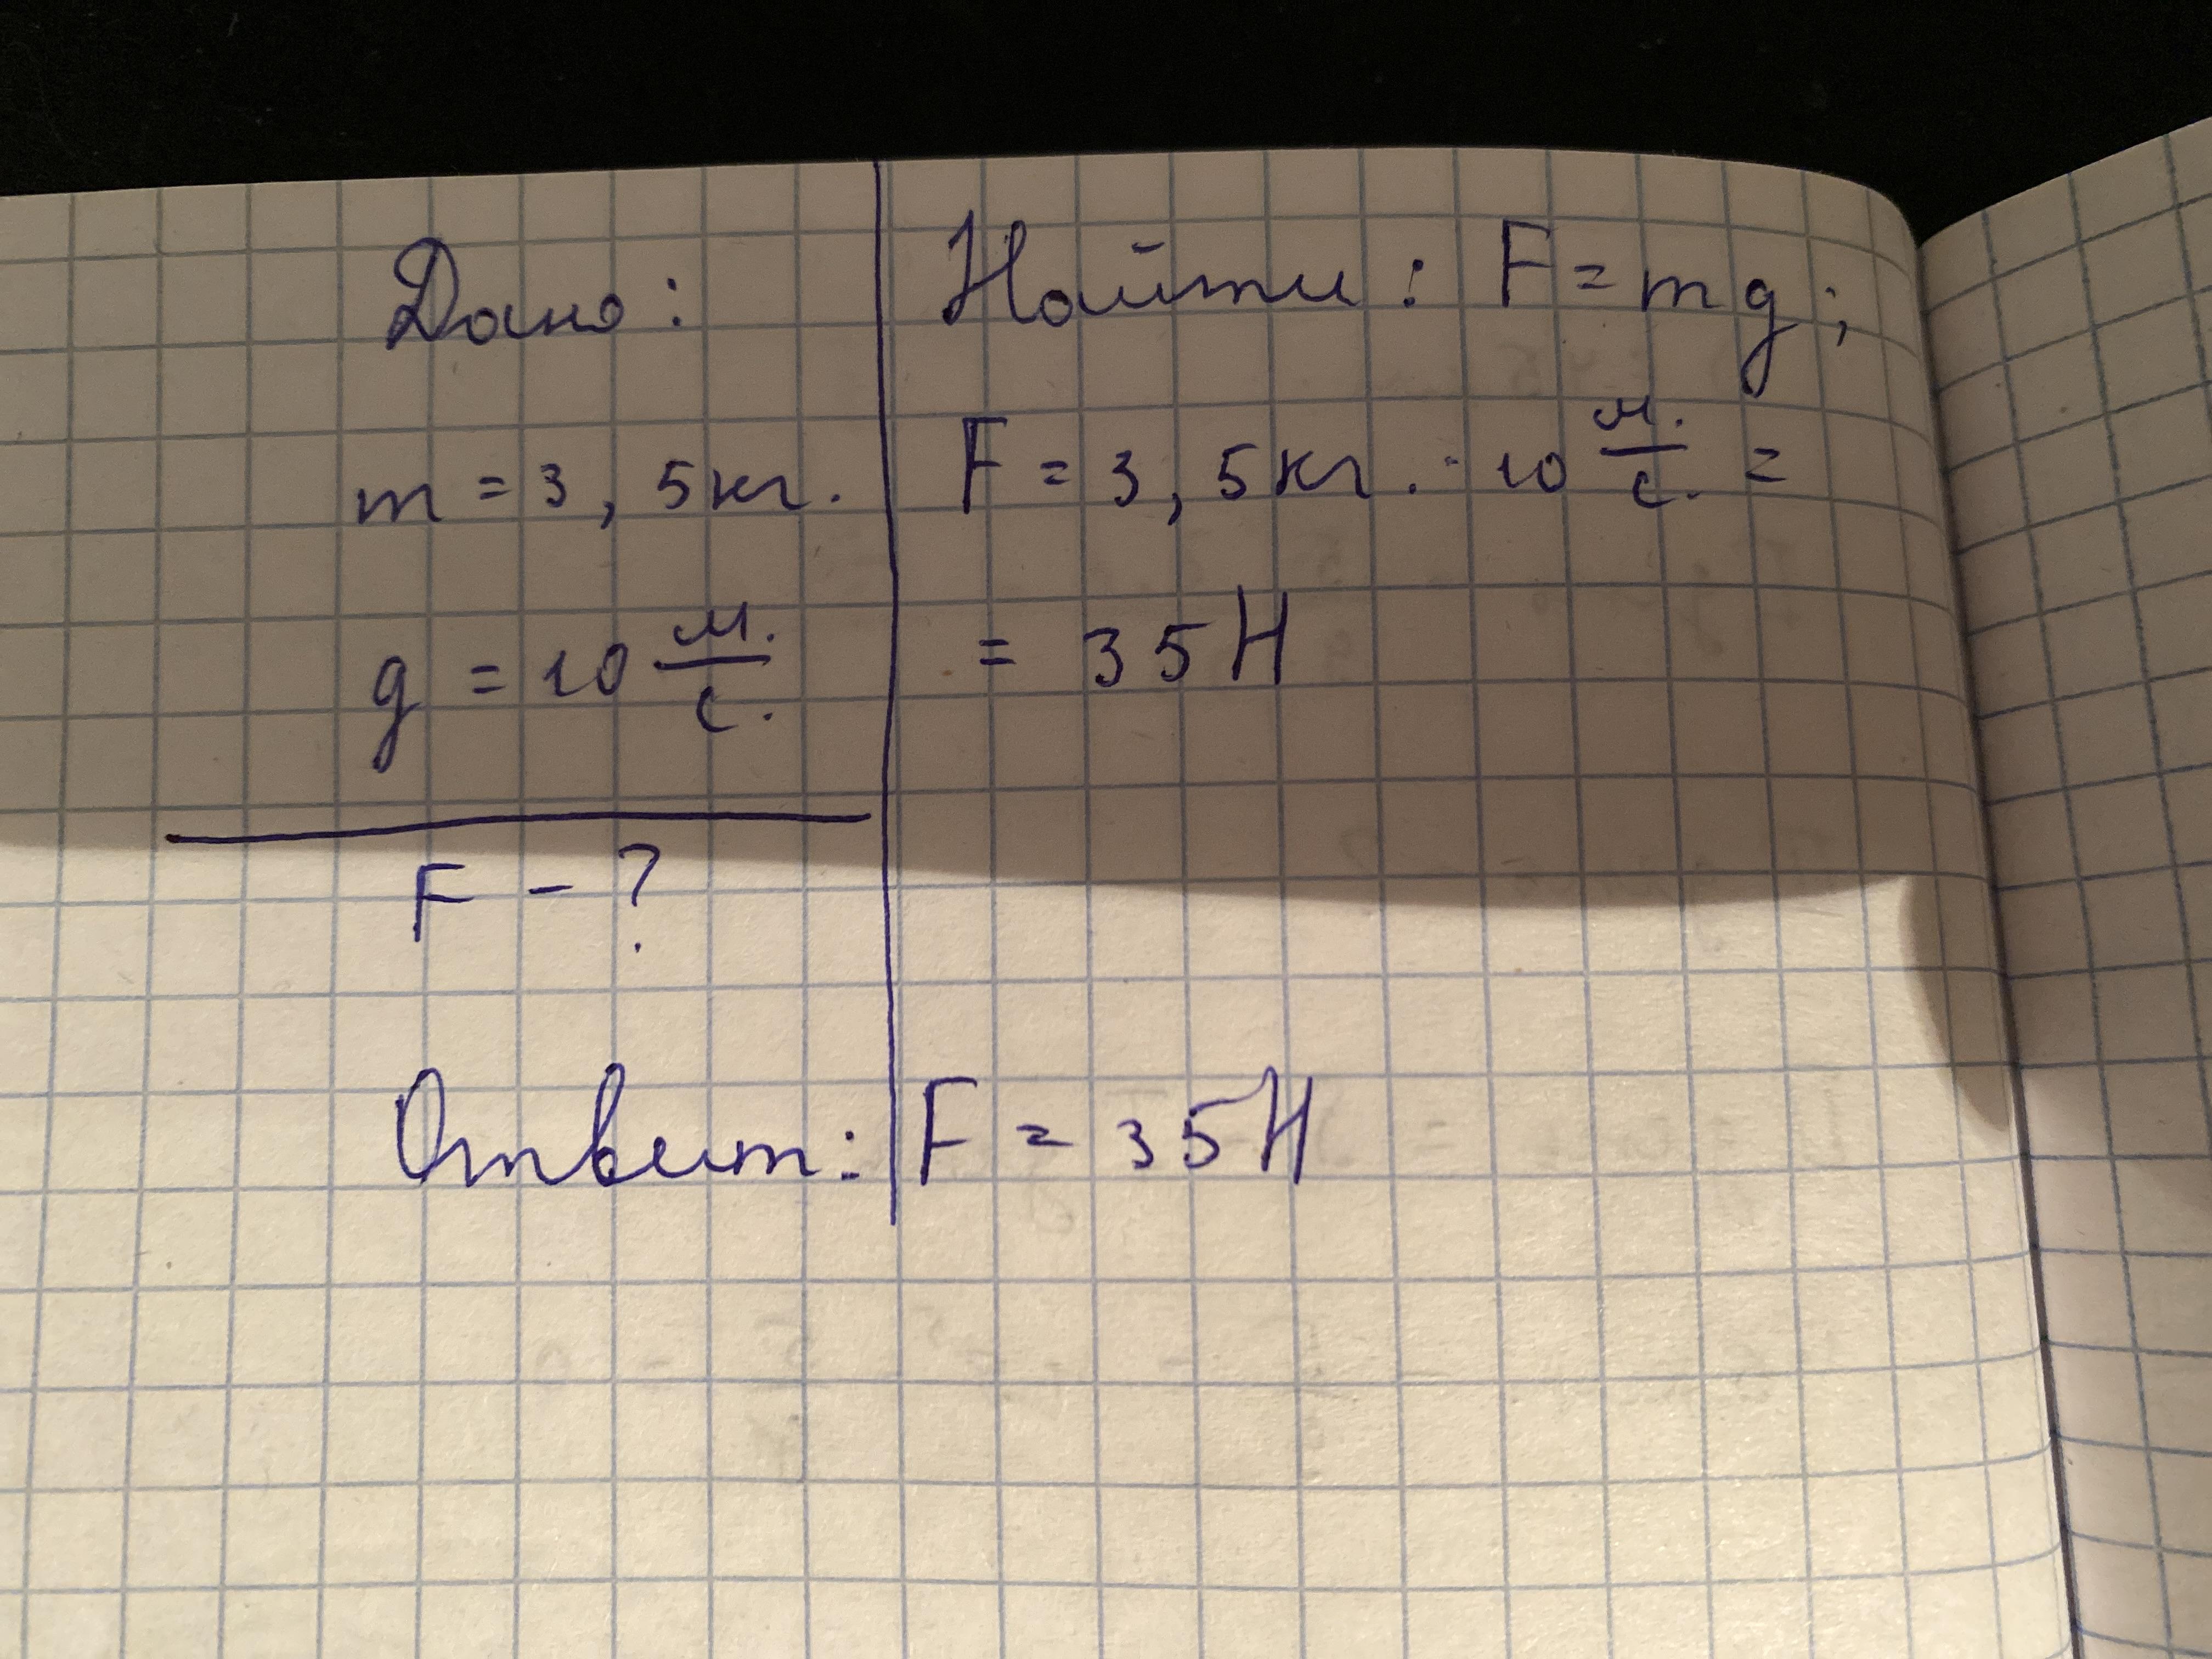 Дано:
m = 3,5кг.
g = 10 м./с.
F - ?
Найти: F = mg;
F = 3,5кг. · 10 м./с. =
= 35Н
Ответ: F = 35Н